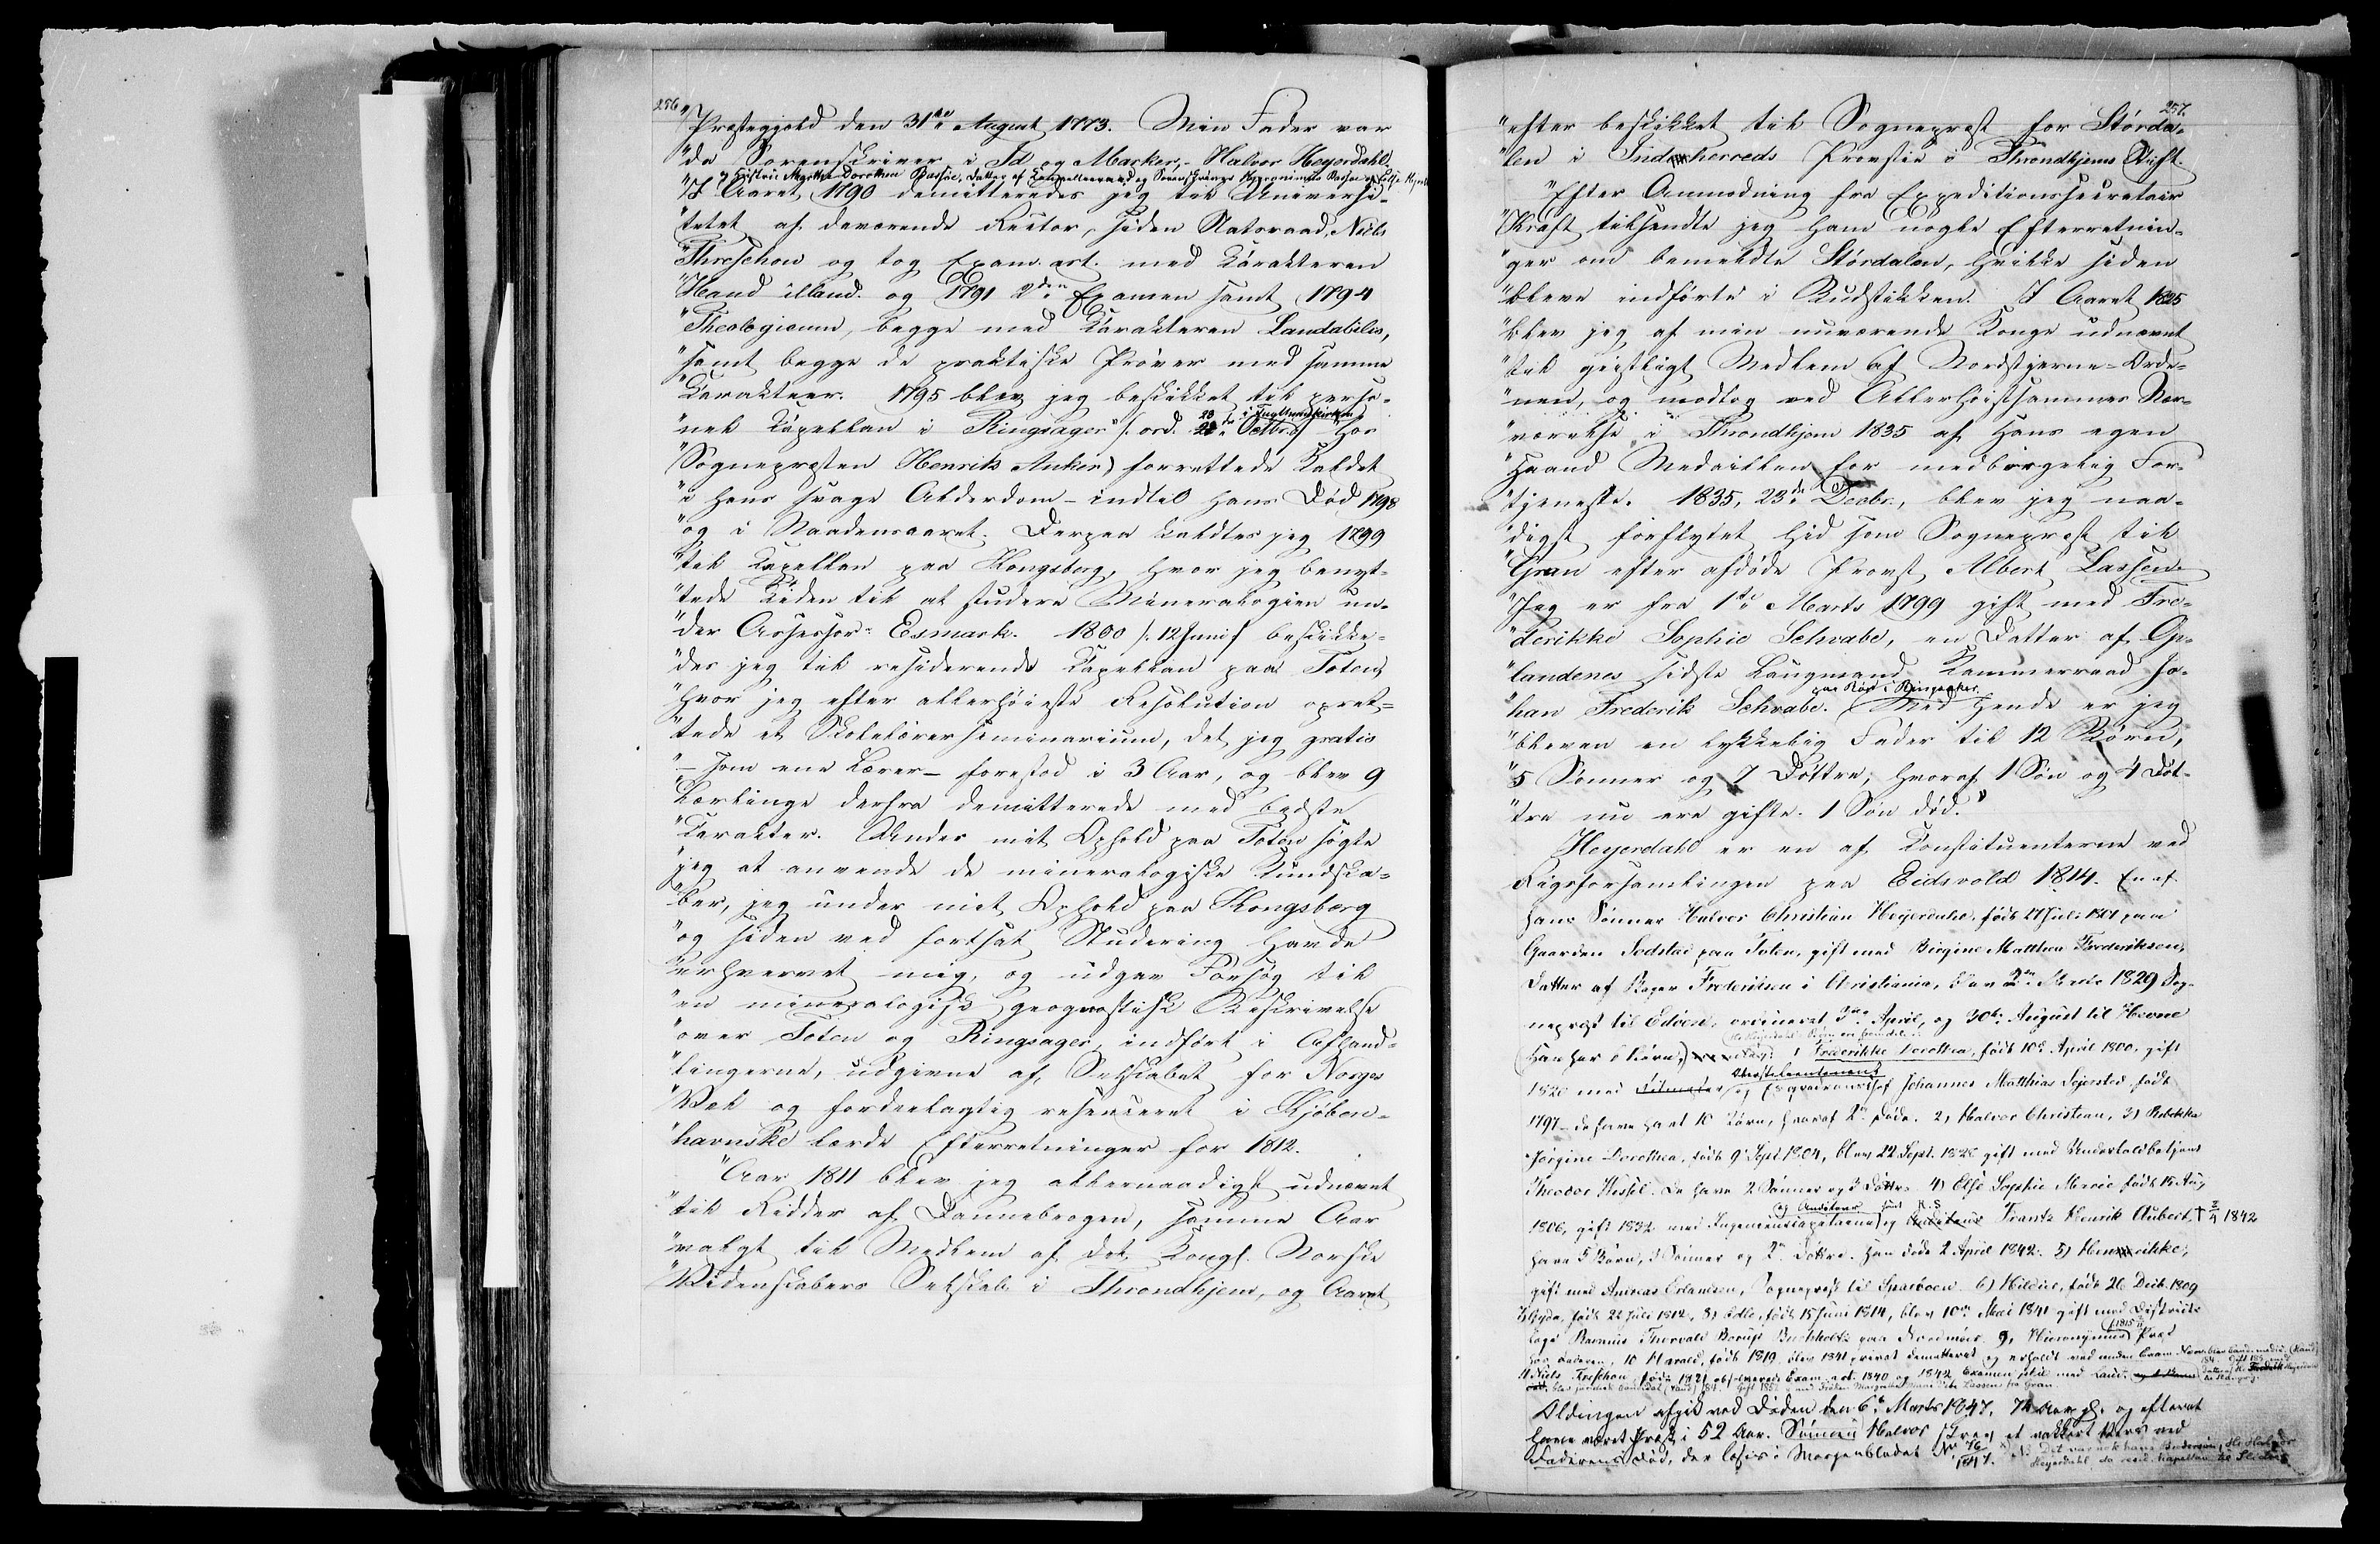 256
"Præstegjeld den 31te August 1773. Min Fader var
"da Sorenskriver i Id og Marker, - Halvor Heyerdahl.
og Hustru Marthe Dorothea Bassøe, Datter af Kammerraad og Sorenskriver Hieronimus Bassøe og
"I Aaret 1790 demitteredes jeg til Universi-
"tetet af daværende Rector, siden Statsraad, Niels
"Threschow og tog Exam. art. med Karakteren
"Haud illaud. og 1791 2den Examen samt 1794
"Theologicum, begge med Karakteren Laudabilis,
"samt begge de praktiske Prøver med samme
"Karakteer. 1795 blev jeg beskikket til perso-
28 i Fuglsundkirken
"nel Kapellan i Ringsager" /: ord. Octbr. :/ "hos
"Sognepræsten Henrik Anker, forrettede Kaldet
"i hans svage Alderdom - indtil hans Død 1798
"og i Naadensaaret. Derpaa kaldtes jeg 1799
"til Kapellan paa Kongsberg, hvor jeg benyt-
"tede Tiden til at studere Mineralogien un-
"der Assessor Esmark. 1800 /: 12 Juni :/ beskikke-
"des jeg til residerende Kapellan paa Toten,
"hvor jeg efter allerhøieste Resolution opret-
"tede et Skolelærerseminarium, det jeg gratis
"- som ene Lærer - forestod i 3 Aar, og blev 9
"Lærlinge derfra demitterede med bedste
"Karakter. Under mit Ophold paa Toten søgte
"jeg at anvende de mineralogiske Kundska-
"ber, jeg under mit Ophold paa Kongsberg
"og siden ved fortsat Studering havde
"erhvervet mig, og udgav Forsøg til
"en mineralogisk geognostisk Beskrivelse
"over Toten og Ringsager, indført i Afhand-
"lingerne, udgivne af Selskabet for Norges
"Vel og fordeelagtig recenseret i Kjøben-
"havnske lærde Efterretninger for 1812.
"Aar 1811 blev jeg allernaadigst udnævnt
"til Ridder af Dannebrogen, samme Aar
"valgt til Medlem af det Kongl. Norske
"Videnskabers Selskab i Throndhjem, og Aaret
257.
"efter beskikket til Sognepræst for Størda-
"len i Inderherreds Provstie i Throndhjems Stift.
"Efter Anmodning fra Expeditionssecretair
"Kraft tilsendte jeg ham nogle Efterretnin-
"ger om bemeldte Størdalen, hvilke siden
"bleve indførte i Budstikken. I Aaret 1825
"blev jeg af min nuværende Konge udnævnt
"til geistligt Medlem af Nordstjerne-Orde-
"nen, og modtog ved Allerhøistsammes Nær-
"værelse i Throndhjem 1835 af Hans egen
"Haand Medaillen for medborgelig For-
"tjeneste. 1835, 23de Decbr., blev jeg naa-
"digst forflyttet hid som Sognepræst til
"Gran efter afdøde Provst Albert Lassen.
"Jeg er fra 1ste Marts 1799 gift med Fre-
"derikke Sophie Schwabe, en Datter af Op-
"landenes sidste Laugmand Kammerraad Jo-
paa Røn i Ringsaker
"han Frederik Schwabe. Med Hende er jeg
"bleven en lykkelig Fader til 12 Børn,
"5 Sønner og 7 Døttre; hvoraf 1 Søn og 4 Døt-
"tre nu ere gifte. 1 Søn død."
Heyerdahl er en af Konstituenterne ved
Rigsforsamlingen paa Eidsvold 1814. En af
hans Sønner Halvor Christian Heyerdahl, født 27 Juli 1801 paa
Gaarden Sodstad paa Toten, gift med Birgine Matthea Frederiksen,
Datter af Frederiksen i Christiania, blev 2den 1829 Sog-
nepræst til Edøen, ordineret April, og 30te August til Hevne
Han har 6 Børn, 1) Frederikke Dorothea, født 10de April 1800, gift
Oberstlieutenant
1820 med og Johannes Matthias Sejersted, født
1797 - de have havt 10 Børn, hvoraf 2de døde. 2) Halvor Christian, 3) Rebekka
Jørgine Dorothea, født 9 Sept. 1804, blev 22 Sept. 1828 gift med Undertoldbetjent
Theodor Hessel. De have 2 Sønner og 3 Døttre. 4) Else Sophie Marie født 15 Aug.
og Auditeur samt R.S
1806, gift 1832 med Ingenieurkapitaine og Frantz Henrik Aubert, † 2/4 1842
have 5 Børn, 3 Sønner og 2de Døttre. Han døde 2 April 1842. 5) Henrikke,
gift med Andreas Erlandsen, Sognepræst til Sparboen. 6) Hildur, født 26 Decb. 1809
7) Gyda, født 22 Juli 1812, 8) Edle, født 15 Juni 1814, blev 10de Mai 1841 gift med Districts
læge Rasmus Thorvald Borup Buchholtz paa Nordmør. 9, Hieronymus
10 Harald, født 1819, blev 1841 privat demitteret og erholdt ved anden Exam.
11 Niels Treschow, født 1821 absolverede Exam. art. 1840 og 1842 Examen phil. med Laud.
Oldingen afgik ved Døden den 6te Marts 1847, 74 Aar gl. og efterat
have været Præst i 52 Aar. Sønnen Halvor skrev et vakkert Vers ved
Faderens Død, der læses i Morgenbladet No 76/1847. NB Det var nok hans Brodersøn, Hr Halvor
Heyerdahl, da resid. Kapellan til